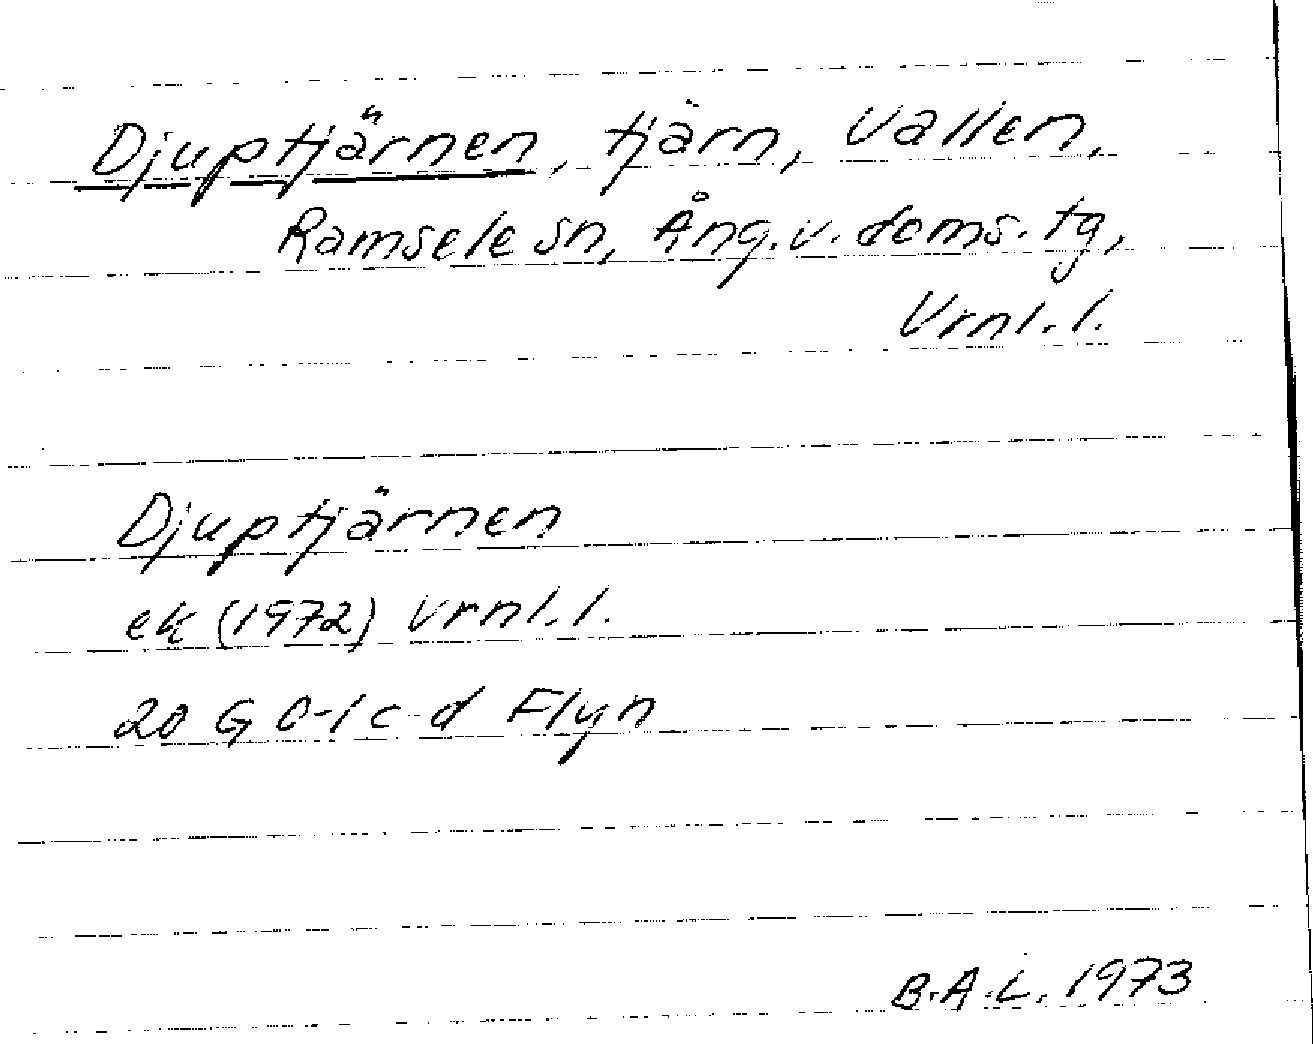 Djuptjärnen, tjärn, Vallen,
Ramsele sn, Ång. v. doms. tg,
Vrnl. l.
Djuptjärnen
ek (1972) Vrnl. l.
20 G 0-1 c-d Flyn
B.A.L. 1973